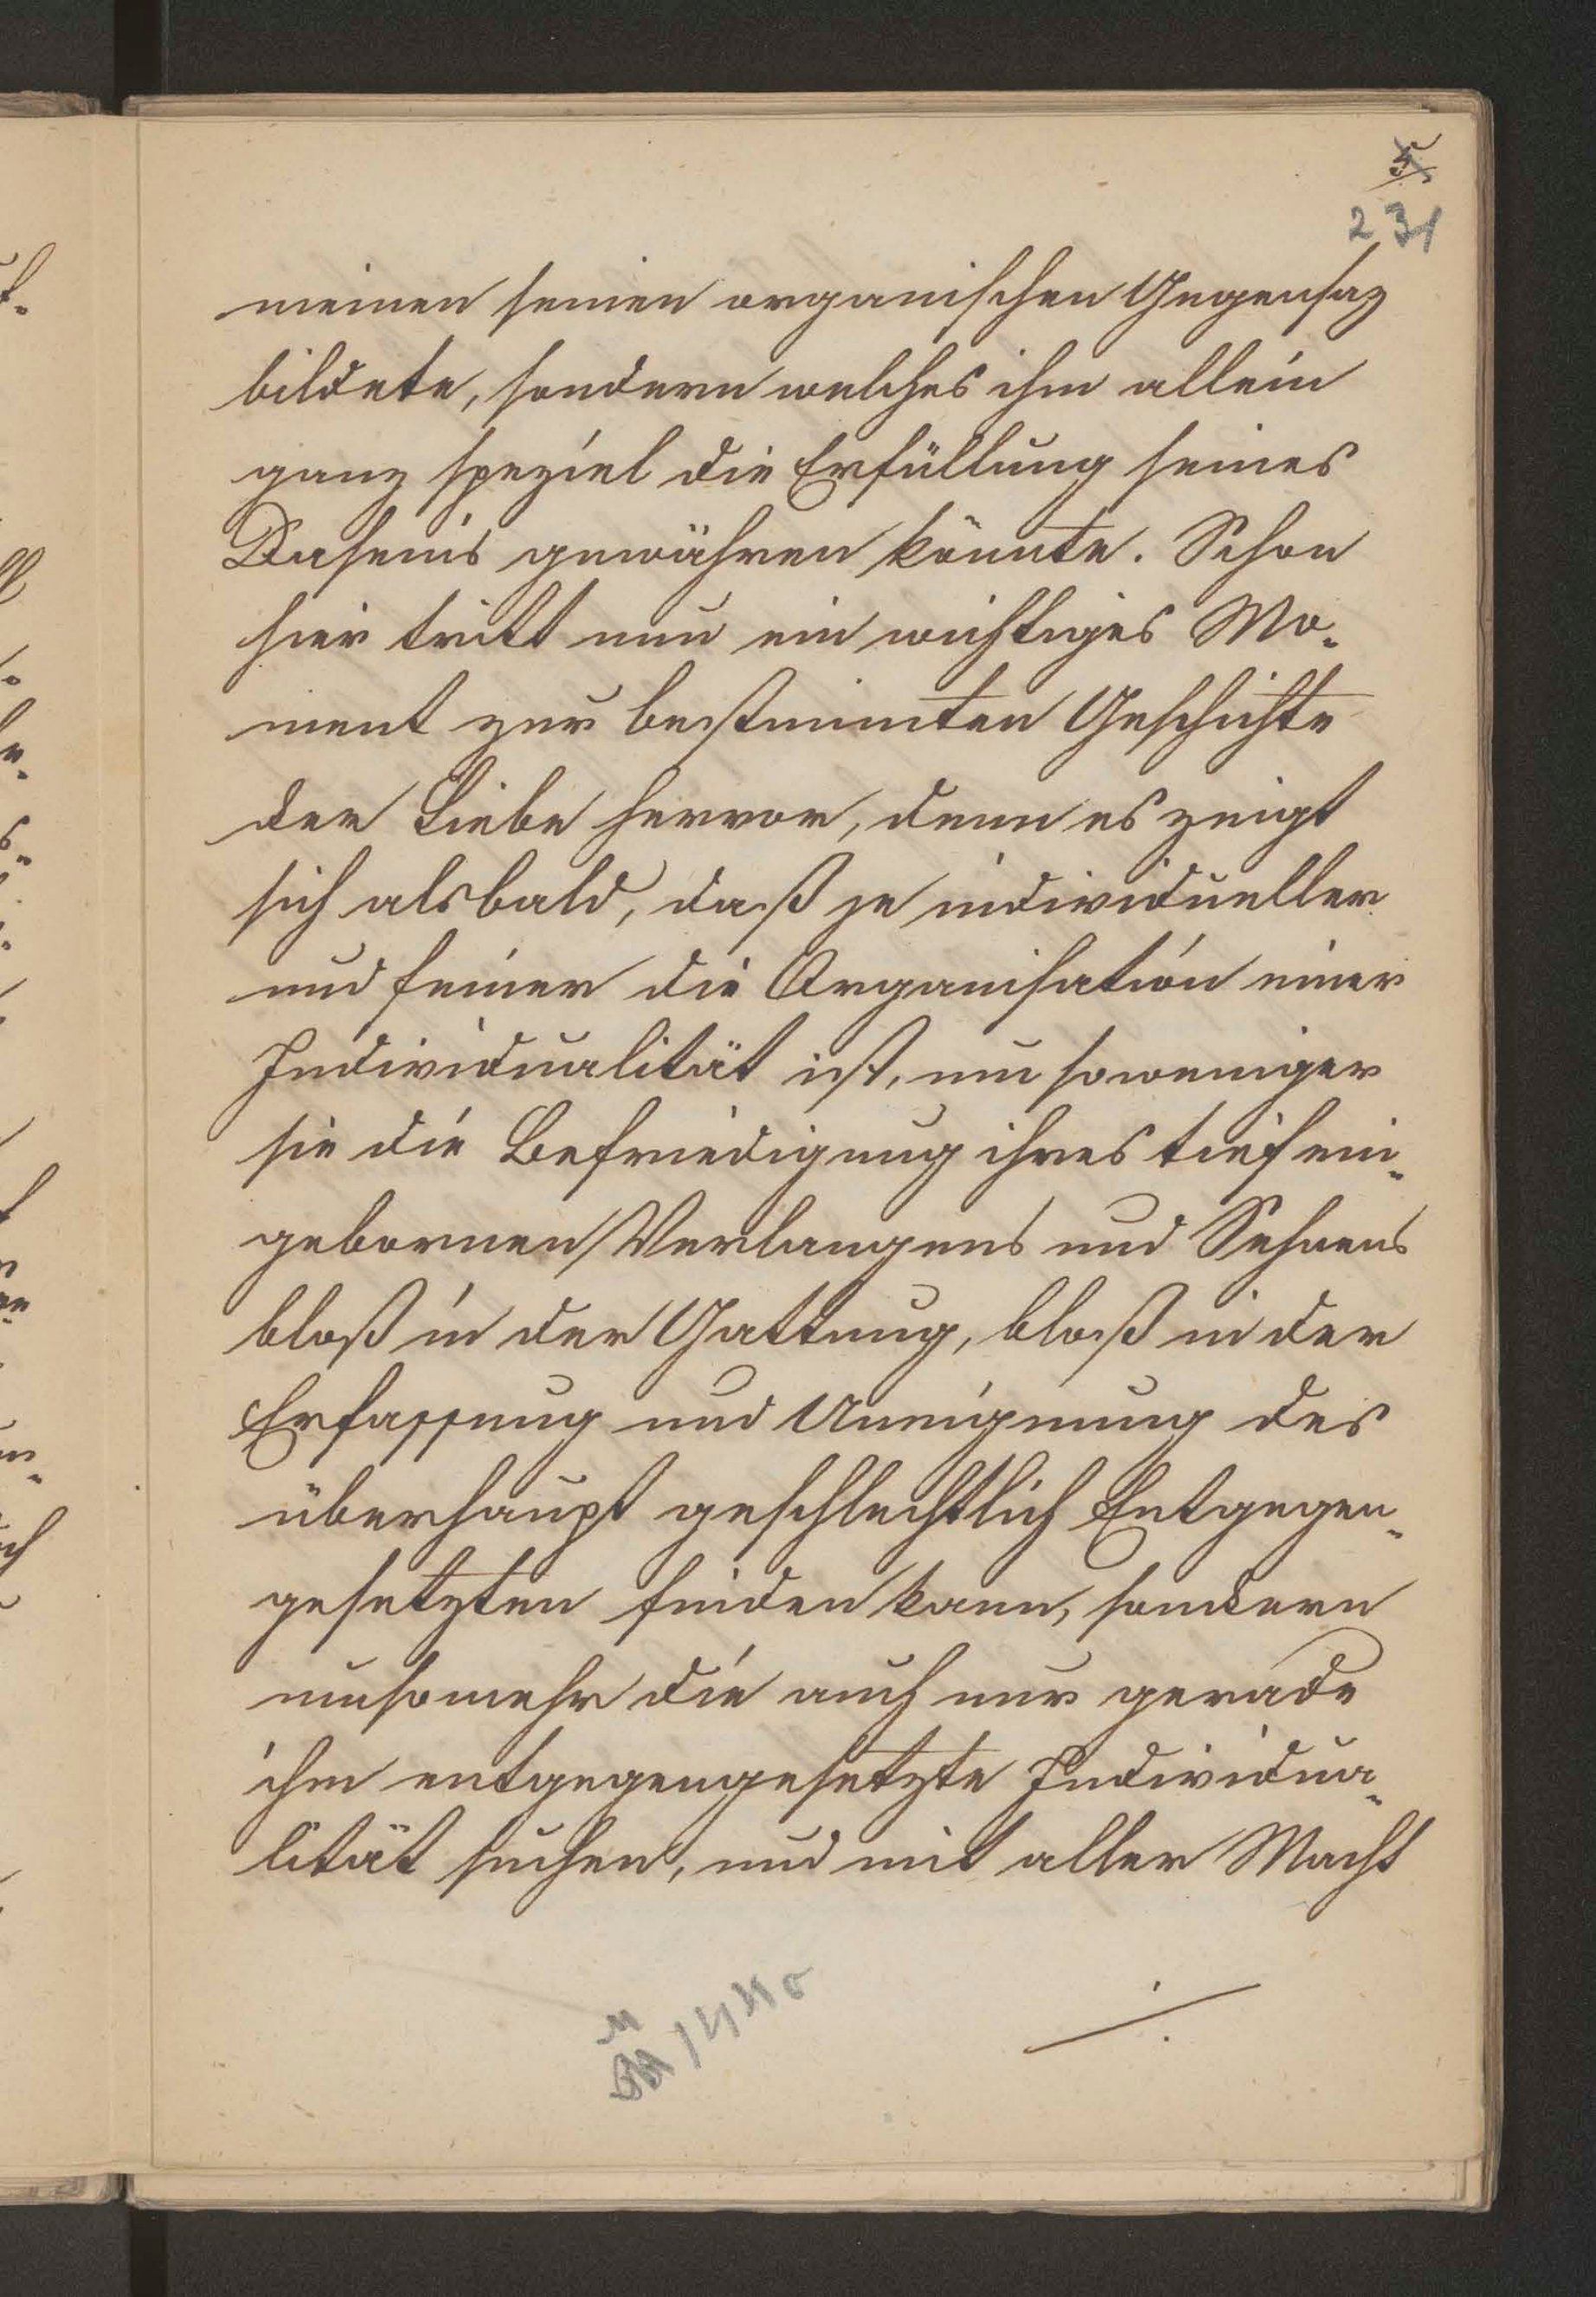 5
231
meinen seinen organischen Gegensaz
bildete, sondern welches ihm allein
ganz speziel die Erfüllung seines
Daseins gewähren könnte. Schon
hier tritt nun ein wichtiges Mo-
ment zur bestimmten Geschichte
der Liebe hervor, denn es zeigt
sich alsbald, daß je individueller
und feiner die Organisation einer
Individualität ist, um soweniger
sie die Befriedigung ihres tief ein-
gebornen Verlangens und Sehnens
bloß in der Gattung, bloß in der
Erfassung und Aneignung des
überhaupt geschlechtlich Entgegen-
gesetzten finden kann, sondern
umsomehr die auch nur gerade
ihm entgegengesetzte Individua-
lität suchen, und mit aller Macht